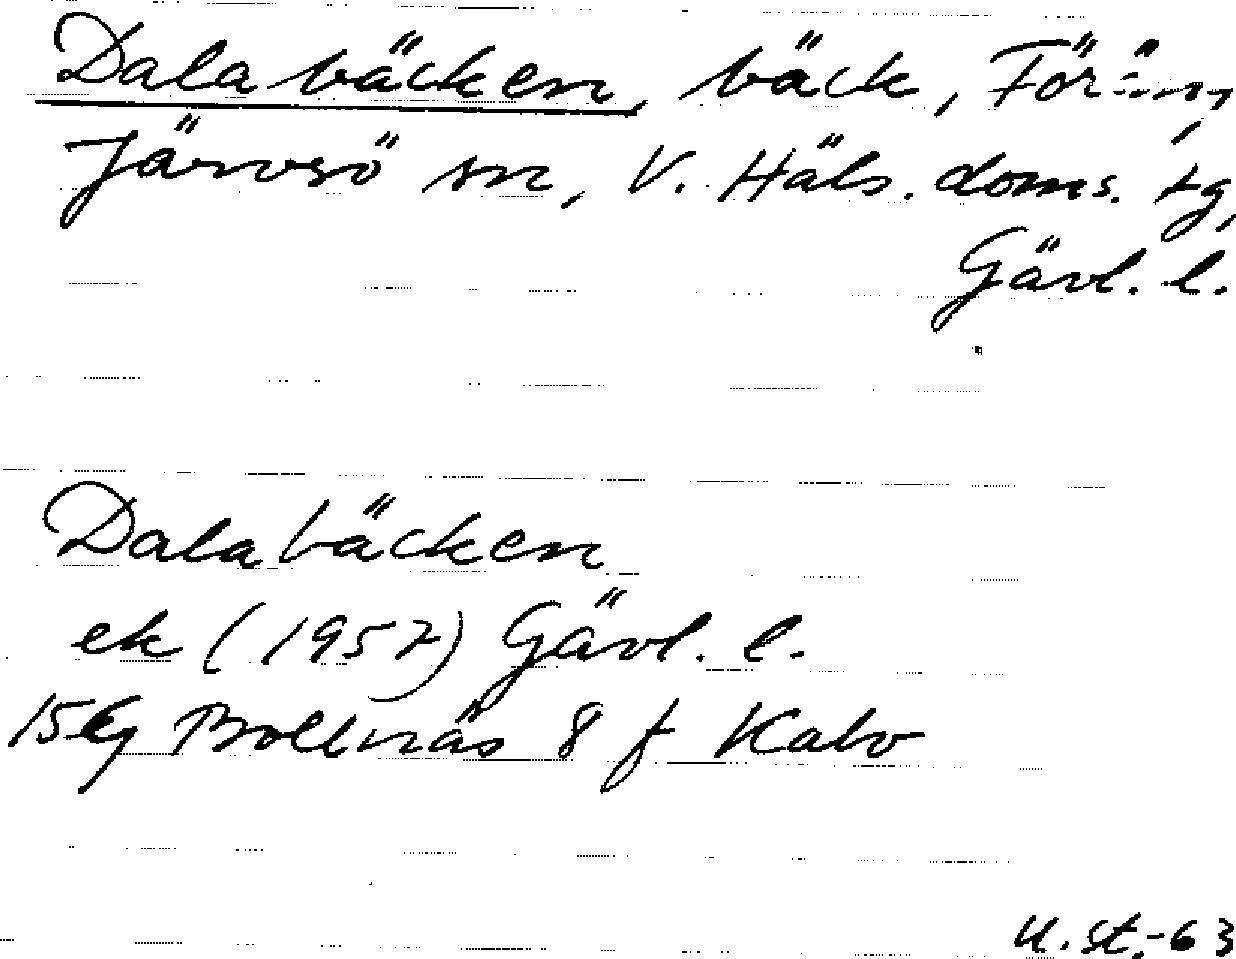 Dalabäcken, bäck, Förön,
Järvsö sn, V. Häls. doms. tg,
Gävl. l.
Dalabäcken
ek (1957) Gävl. l.
15G Bollnäs 8 f Kalv
U.st.-63